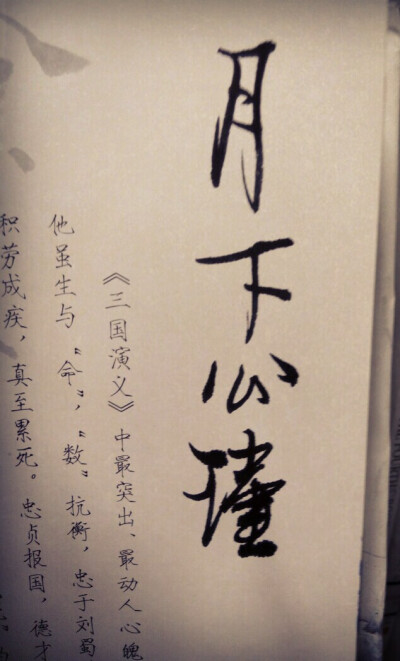 月下公瑾
《三国演义》中最突出、最动人心魄
他虽生与“命”，“数”抗衡，忠于刘蜀
积劳成疾，真至累死。忠贞报国，德才